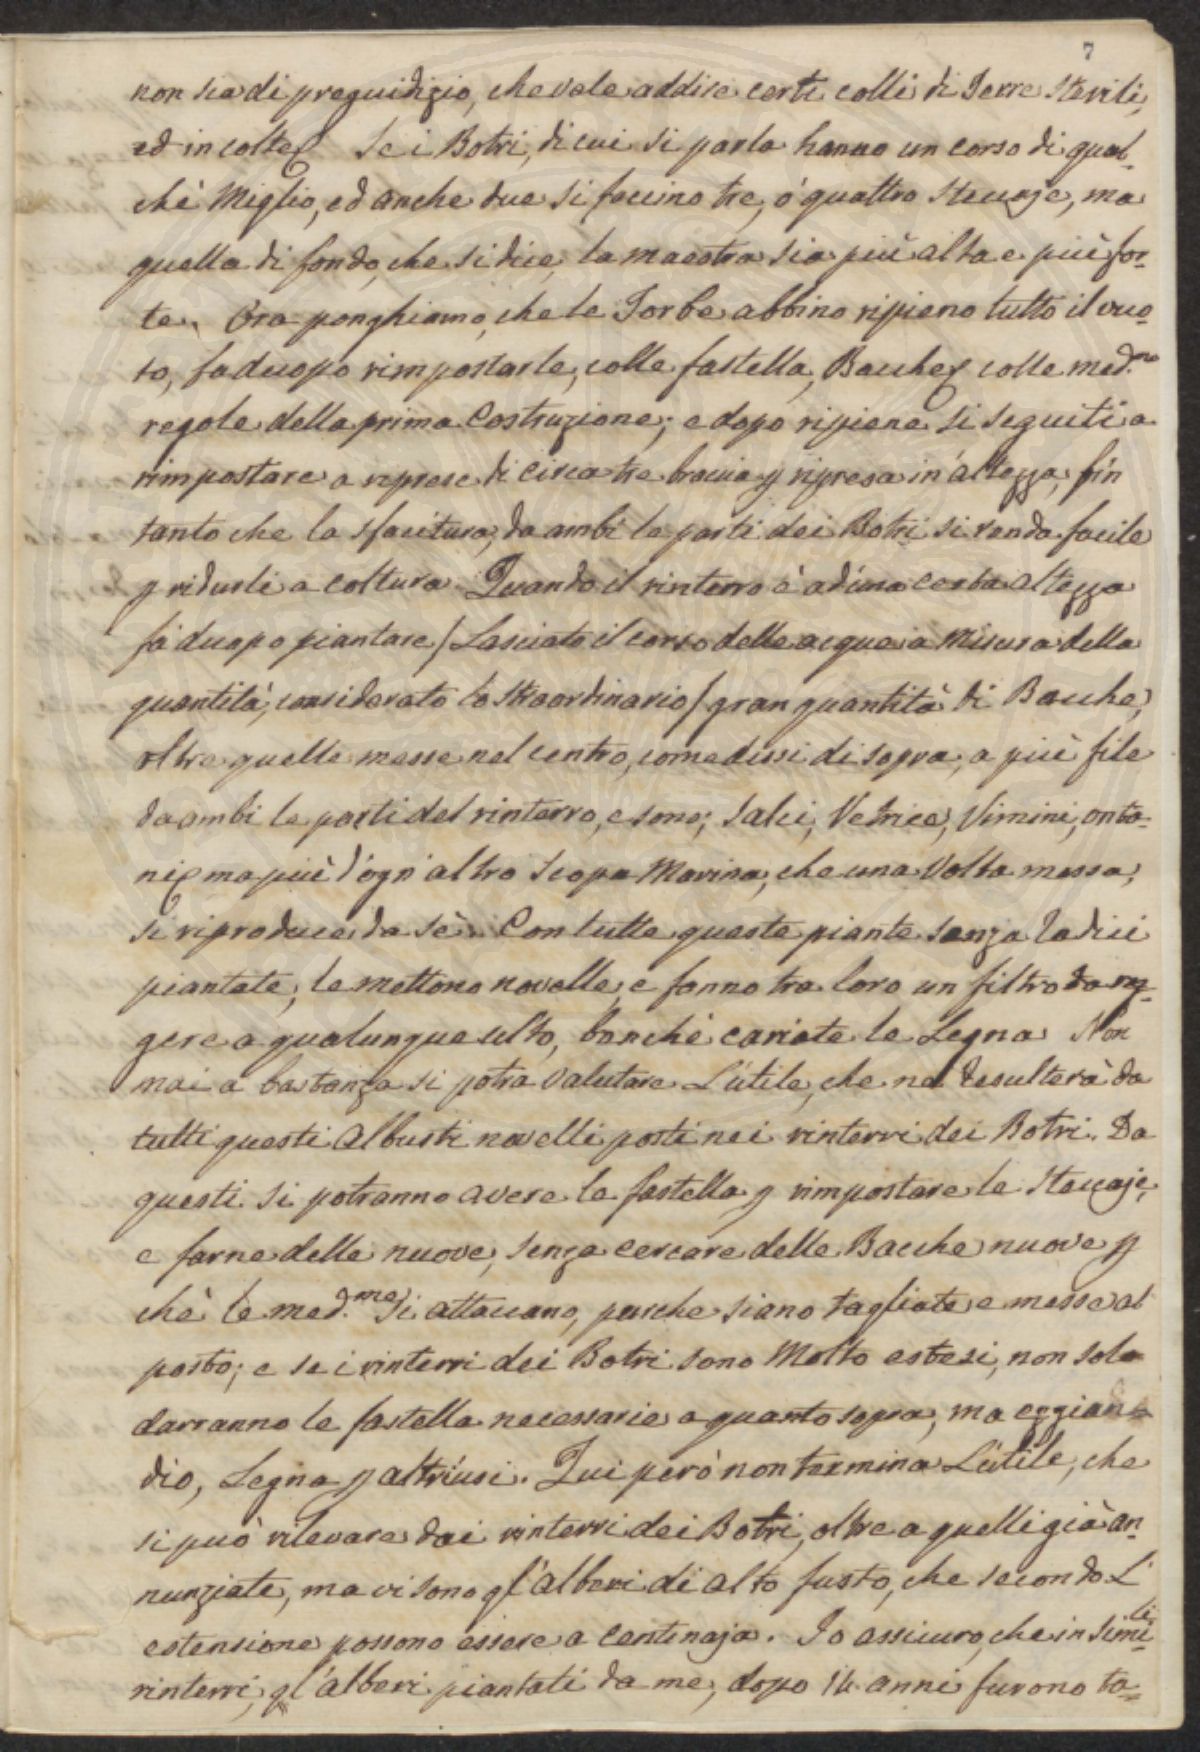 7
non sia di preguidizio, che vole addire certi colli di Terre sterili,
ed incolte Se i Botri, di cui si parla hanno un corso di qual-
chè Miglio, ed anche due si faccino tre, o' quattro Steccaje, ma
quella di fondo, che si dice, la maestra sia più alta e più for-
te. Ora ponghiamo, che le Torbe abbino ripieno tutto il vuo-
to, fa duopo rimpostarle, colle fastella, Bacche colle med.me
regole della prima Costruzione; e dopo ripiene si seguiti a
rimpostare a riprese di circa tre braccia p ripresa in altezza, fin
tanto che la sfacitura, da ambi le parti dei Botri si renda facile
p ridurli a coltura. Quando il rinterro è ad'una certa altezza
fa duopo piantare / Lasciato il corso delle acque a Misura della
quantità, considerato lo straordinario / gran quantità di Bacche,
oltre quelle messe nel centro, come dissi di sopra, a più file
da ambi le parti del rinterro, e sono; Salci, Vetrice, Vimini, onta-
ni ma più d'ogn'altro Scopa Marina, che una Volta messa,
si riproduce da sè. Con tutte queste piante senza Radici
piantate, le mettono novelle, e fanno tra loro un filtro da reg-
gere a qualunque urto, benchè cariate le Legna Non
mai a bastanza si potra valutare L'utile, che ne resulterà da
tutti questi Albusti novelli posti nei rinterri dei Botri. Da
questi si potranno avere le fastella p rimpostare le Steccaje,
e farne delle nuove, senza cercare delle Bacche nuove p
chè le med.me si attaccano, purche siano tagliate e messe al
posto; e se i rinterri dei Botri sono Molto estesi, non solo
darranno le fastella necessarie a quanto sopra, ma eggian-
dio, Legna p altri usi. Qui però non termina L'utile, che
si può rilevare dai rinterri dei Botri, oltre a quelli già an-
nunziate, ma vi sono gl'alberi di alto fusto, che secondo L'
estensione possono essere a centinaja. Io assicuro, che in simi-
li
rinterri, gl'alberi piantati da me, dopo 14 anni furono ta-